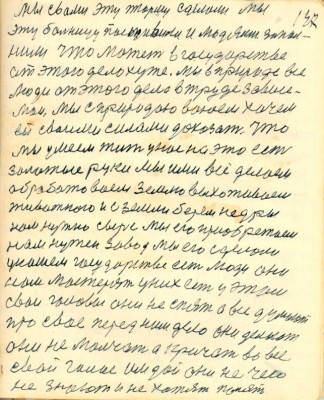 132
мы своми эту тюрму сделоли мы
эту болницу построили и люд Ями запол-
нили что может в государстве
от этого дело хуже. мы в природе все
люди от этого дело в труде зависи-
мои, мы с природою воюем хочем
ей своими силами доказат. что
мы умеем жит у нас на это ест
золотые руки мы ими всё делаем
обработоваем землю выхотиваем
животного и с земли берем недры
нам нужно сырё мы его приобретаем
нам нужен завод мы его сделоли
у нашем государстве ест люди они
нам мастерят у них ест у этом
свои головы они не спят а все думают
про свое переднии дело они делают
они не молчат а кричат во все
свой голос им дай они не чего
не знают и не хотят понят